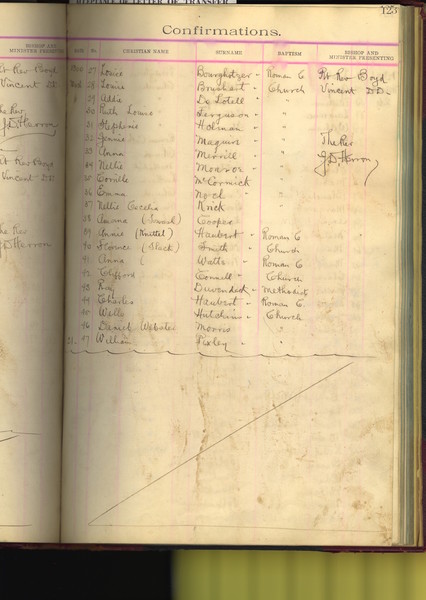 RECEIPT OF LETTER OF TRANSFER
125
Confirmations.
BISHOP AND MINISTER PRESENTING
No. CHRISTIAN NAME SURNAME BAPTISM BISHOP AND MINISTER PRESENTING
27 Louie Roman C Rt Rev Boyd
28 Louie Church Vincent D.D.
29 Addie De Lotell "
30 Ruth Louise Ferguson "
31 Stephen Holman "
32 Jennie Maguire " The Rev
33 Anna Merrill " J D Herron
34 Nellie Monroe "
35 Orville McCormick
36 Emma Noel "
37 Nellie Cecelia Rick
38 Amana Cooper
39 Annie (Knittel) Haubert Roman C
40 Florence (Black) Smith Church
41 Anna ( Watts Roman C
42 Clifford Connell Church
43 Roy Duvendeck Methodist
44 Charles Haubert Roman C
45 Wells Hutchins Church
46 Daniel Webster Morris "
21. 47 William Sixley "
Rt Rev Boyd
Vincent DD
The Rev
J D Herron
Vincent DD
The Rev
J D Herron